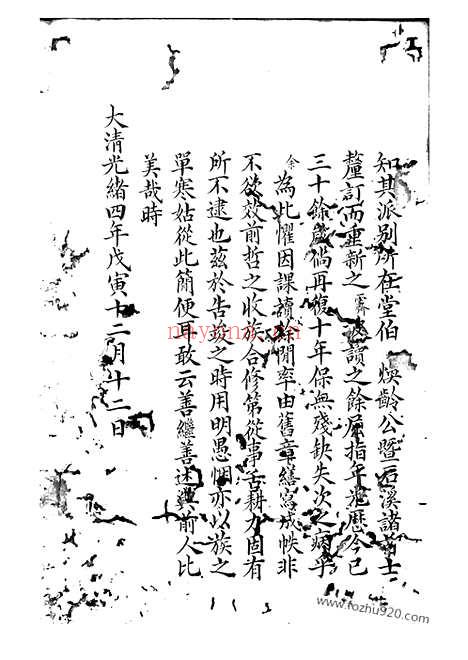 知其派别所在堂伯 煥齡公暨石溪諸
釐訂而重新之 讀之餘屈指年歷今已
三十餘歲倘再復十年保無殘缺失次之病乎
余為此懼因課讀於閒率由舊章繕寫成帙非
不欲效前哲之收放合修第從事舌耕力固有
所不逮也茲於告之時用明愚悃亦以族之
單寒姑從此簡便耳敢云善繼善述與前人比
美哉時
大清光緒四年戊寅十二月十二日
nayuna.cn
www.fozhu920.com